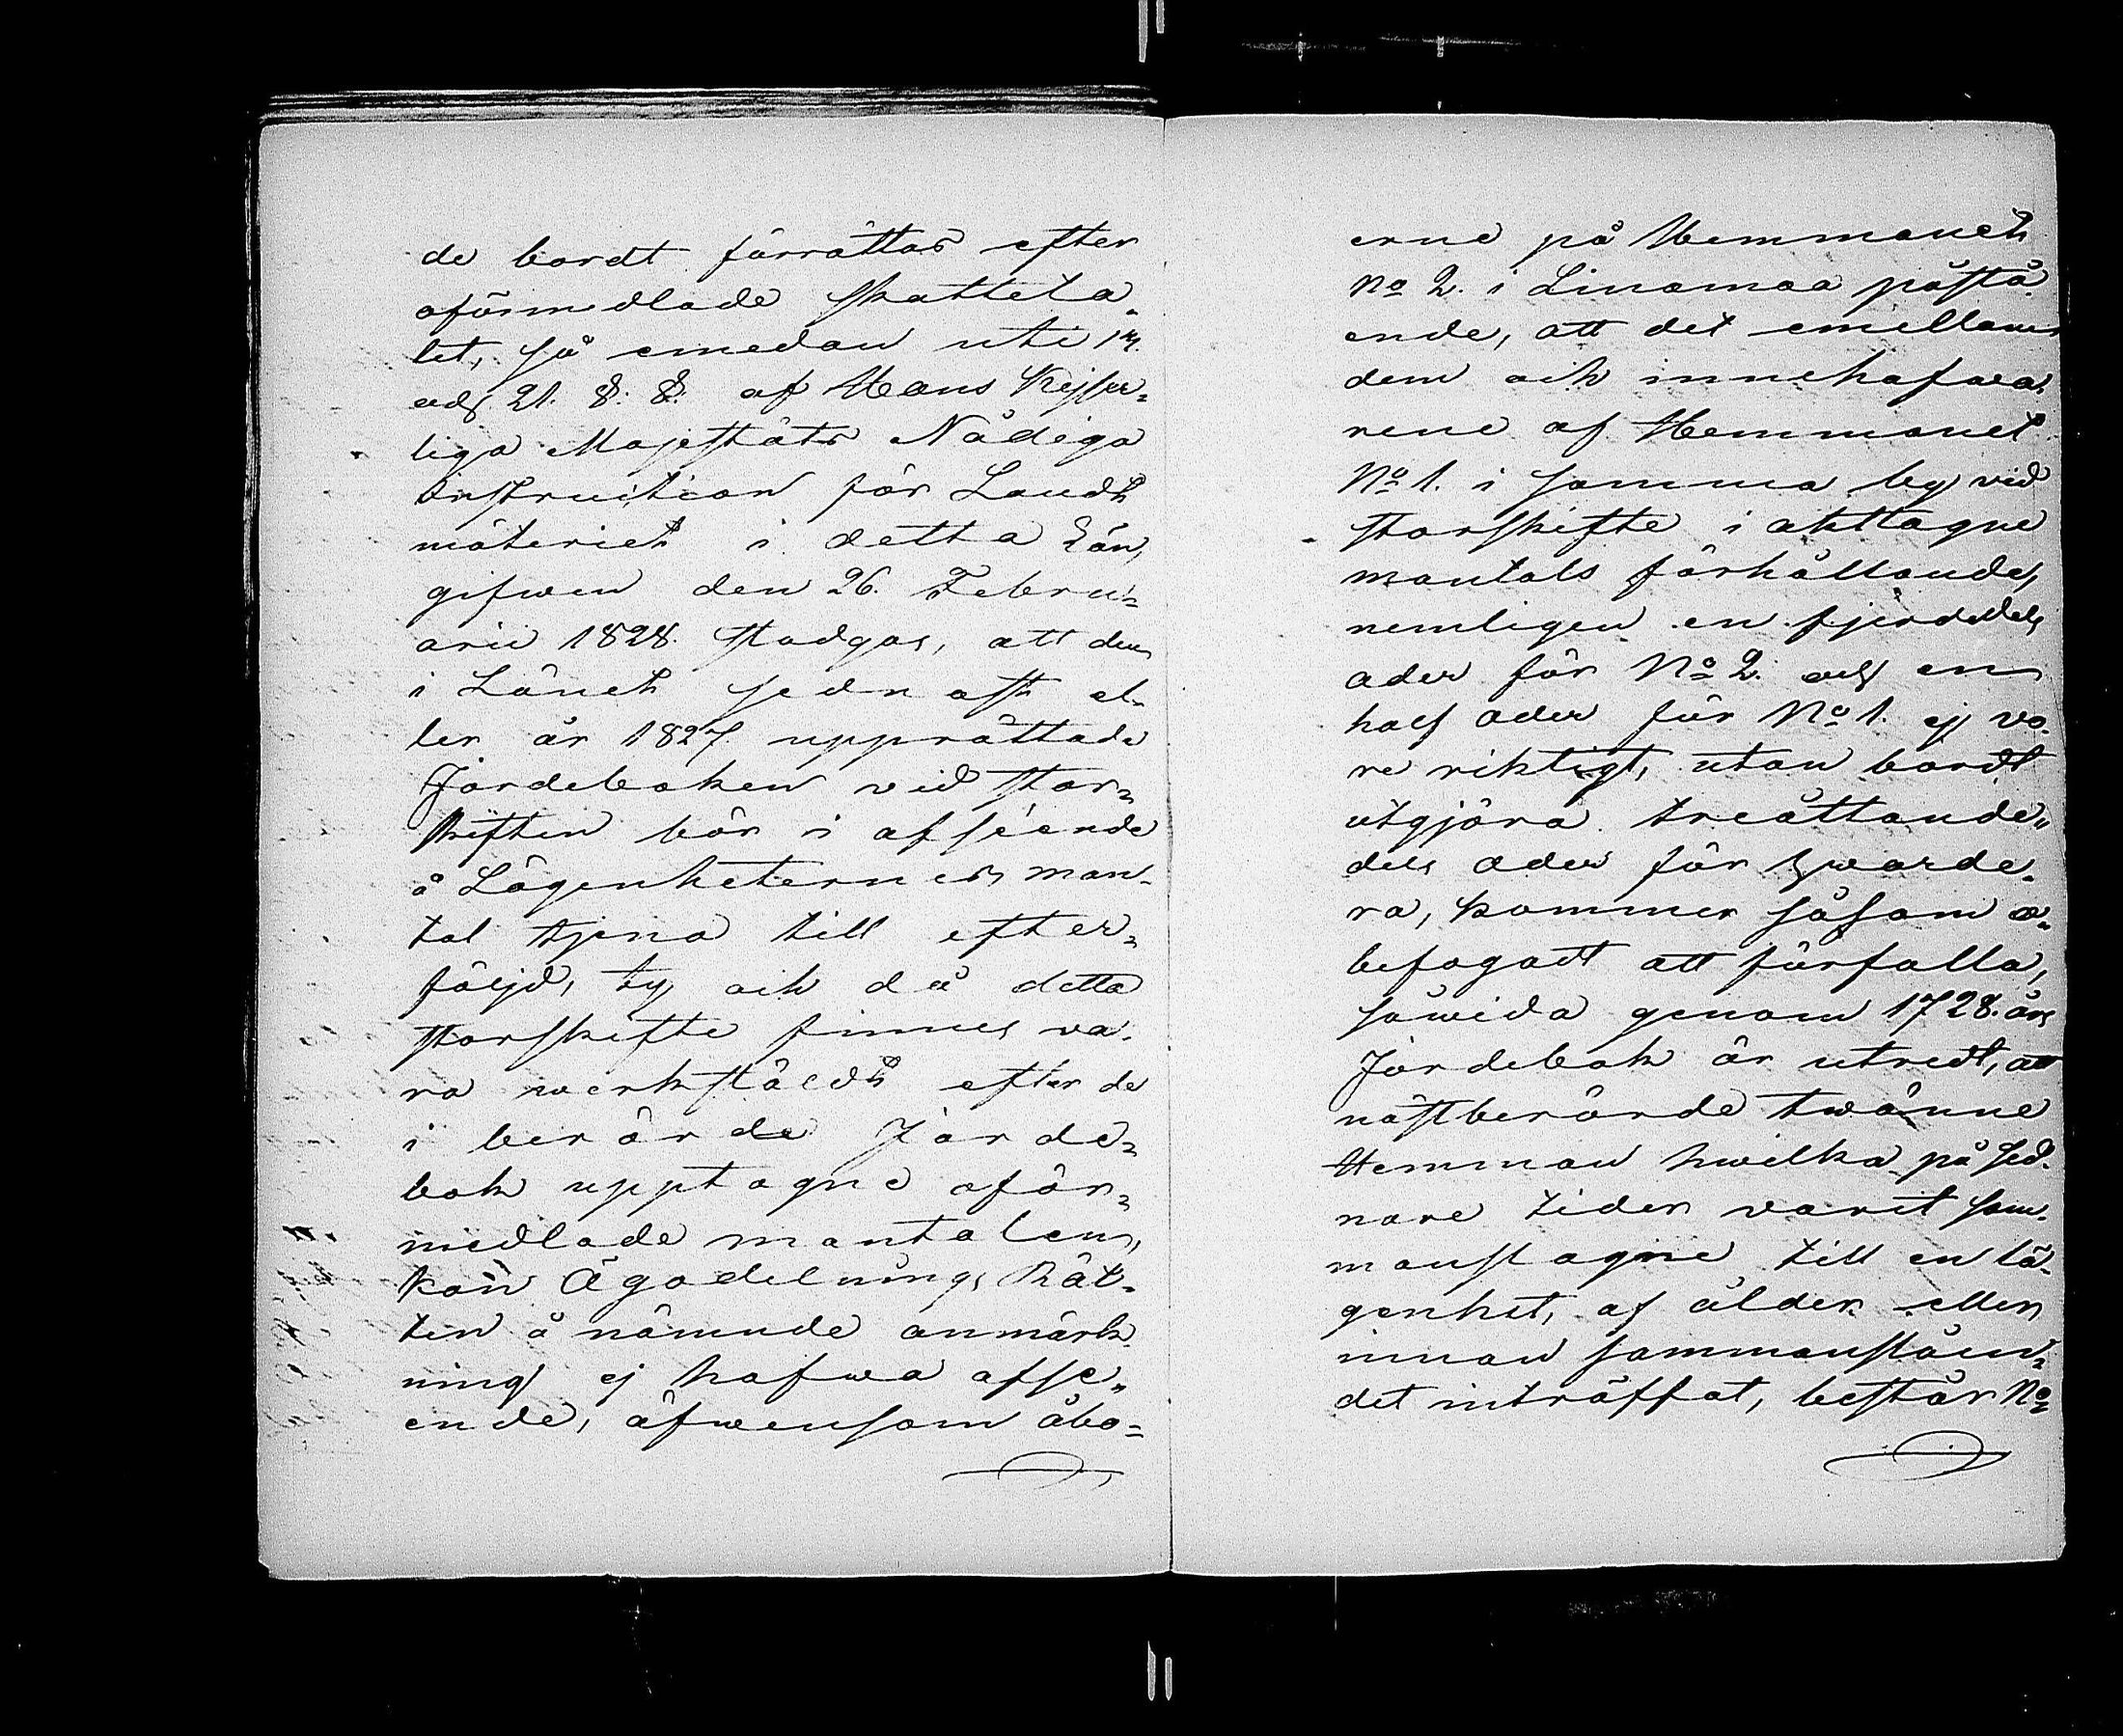 de bordt förrättas efter
aförmedlade skatteta„
let, så emedan uti 1.
och 21. §. §. af Hans Kejser„
liga Majestäts Nådiga
instruction för Landt
mäteriet i detta Län,
gifwen den 26. Febru„
arii 1828. stadgas, att den
i Länet sednast el„
ler år 1827. upprättade
Jordeboken vid stor„
skiften bör i afséende
å Lägenheternes man„
tal tjena till efter„
följd, ty och då detta
storskifte finnes va„
ra werkstäldt efter de
i berörde Jorde„
bok upptagne aför„
medlade mantalen,
kan Ägodelnings Rät„
ten å nämnde anmärk
ning ej hafwa afse„
ende, äfwensom åbo„
erne på Hemmanet
No 2. i Linamaa påstå
ende, att det emellan
dem och innehafwa„
rene af Hemmanet
No 1. i samma by vid
storskifte i akttagne
mantals förhållande,
nemligen en fjerdedels
ader för No 2. och en
half ader för No 1. ej vo„
re riktigt, utan bordt
utgjöra treåttande„
dels ader för hwarde„
ra, kommer såsom o„
befogadt att förfalla,
såwida genom 1728. års
Jordebok är utredt, att
nästberörde twänne
Hemman hwilka på sed„
nare tider varit sam„
manslagne till en lä„
genhet, af ålder eller
innan sammanslåen„
det inträffat, består No